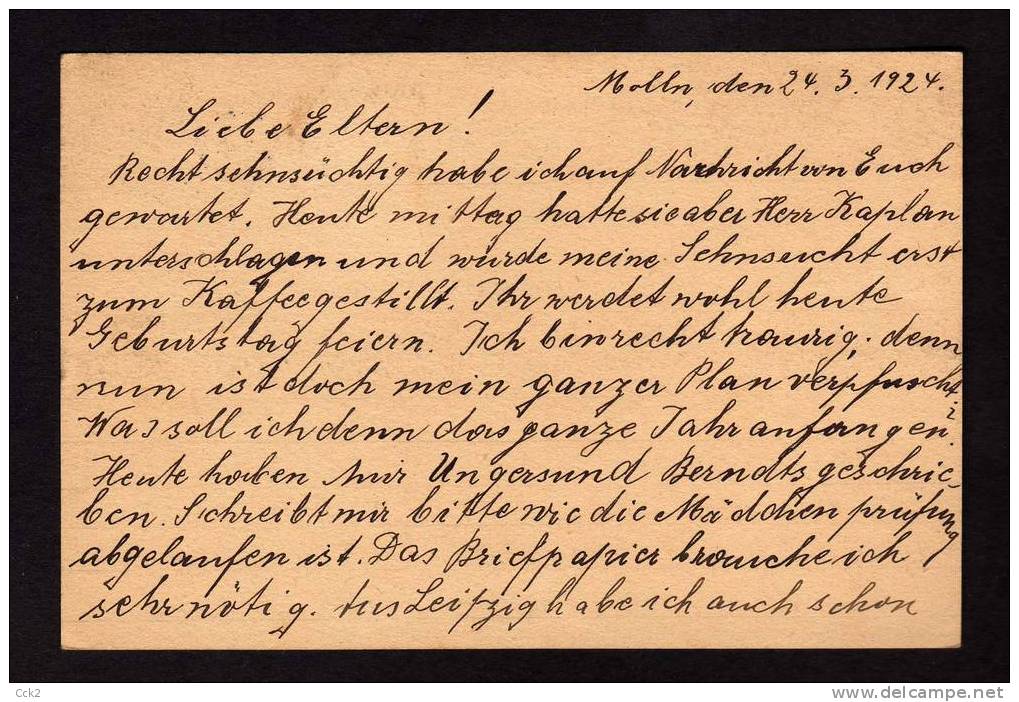 Molln, den 24. 3. 1924.
Liebe Eltern!
Recht sehnsüchtig habe ich auf Nachricht von Euch
gewartet. Heute mittag hatte sie aber Herr Kaplan
unterschlagen und wurde meine Sehnsucht erst
zum Kaffee gestillt. Ihr werdet wohl heute
Geburtstag feiern. Ich bin recht traurig, denn
nun ist doch mein ganzer Plan verpfuscht.
Was soll ich denn das ganze Jahr anfangen?
Heute haben mir Ungers und Berndts geschrie-
ben. Schreibt mir bitte wie die Mädchenprüfung
abgelaufen ist. Das Briefpapier brauche ich
sehr nötig. Aus Leipzig habe ich auch schon
Cck2
www.delcampe.net